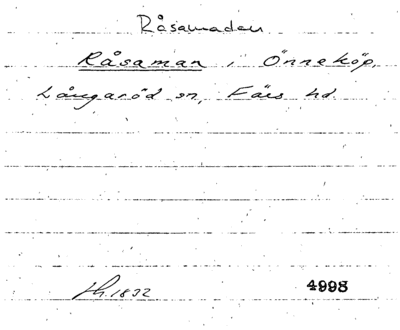 Råsamaden
Råsaman, Önneköp,
Långaröd sn, Färs hd.
Lh. 1832 4998